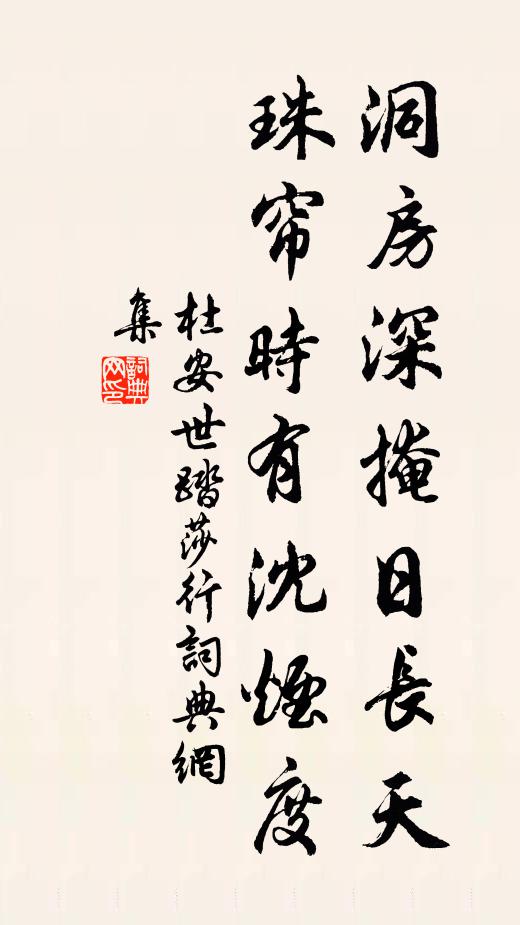 洞房深掩日長天
珠帘時有沈煙度
杜安世踏莎行詞典網
集
詞典網印